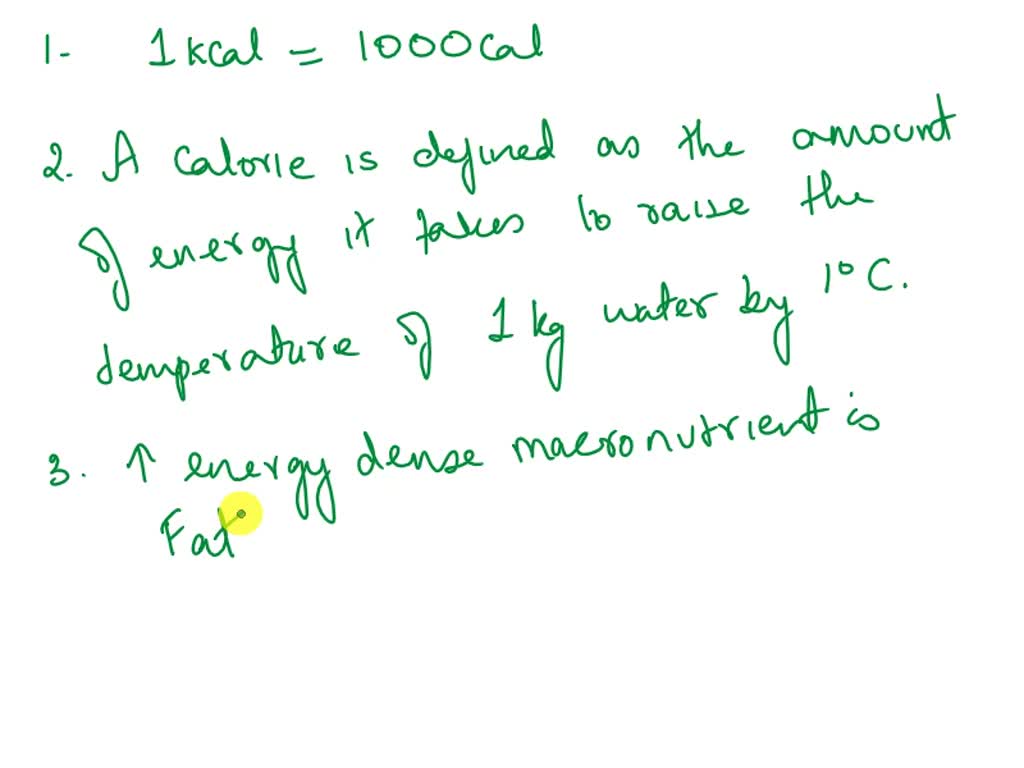 1- 1 kcal = 1000 cal
2. A calorie is defined as the amount
of energy it takes to raise the
temperature of 1 kg water by 1° C.
3. ↑ energy dense macronutrient is
Fat